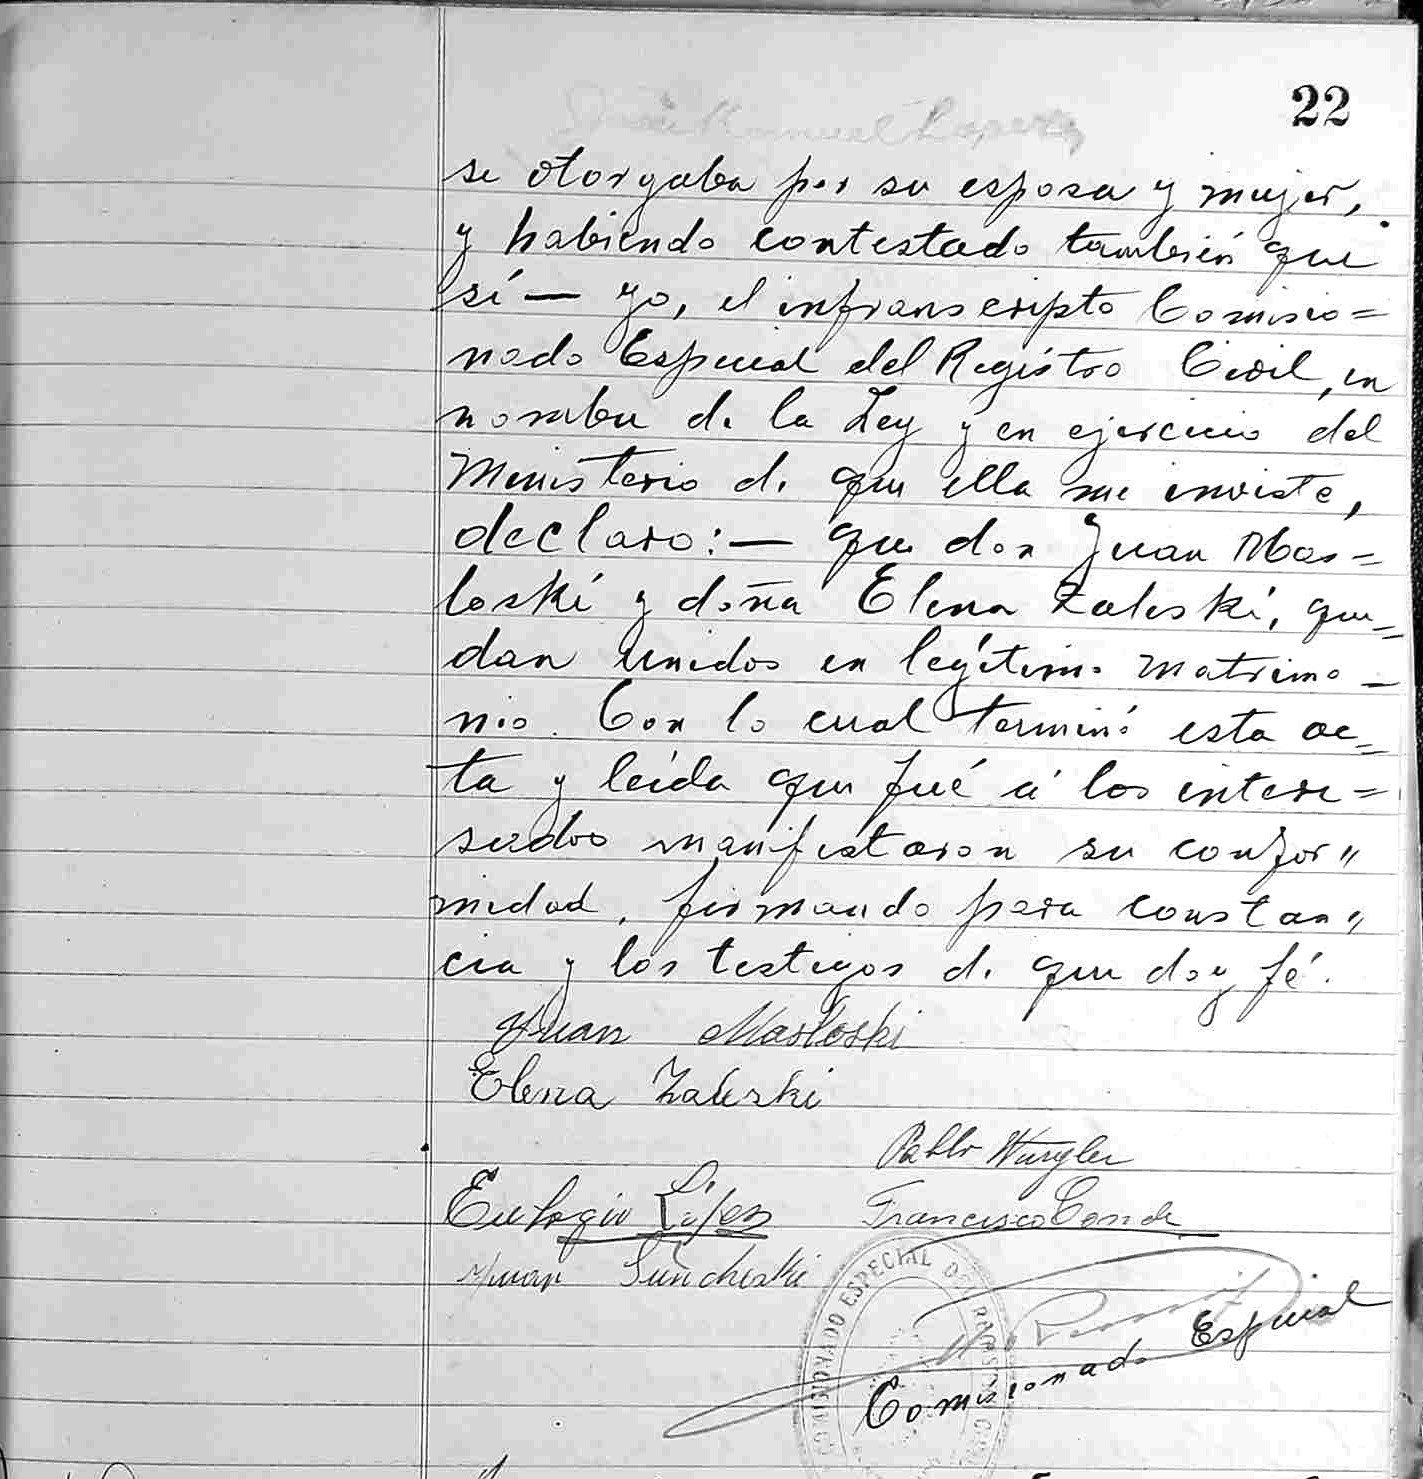 22
se otorgaba por su esposa y mujer,
y habiendo contestado también que
sí — yo, el infranscripto Comisio=
nado Especial del Registro Civil, en
nombre de la Ley y en ejercicio del
Ministerio de que ella me inviste,
declaro:— que don Juan Mas=
loski y doña Elena Zaleski, que=
dan unidos en legítimo matrimo-
nio. Con lo cual terminó esta ac=
ta y leída que fué á los intere=
sados manifestaron su confor"
midad, firmando para constan"
cia y los testigos de que doy fé.
Juan Masloski
Elena Zaleski
Pablo Wurgler
Eulogio López Francisco Conde
Juan
COMISIONADO ESPECIAL DEL REGISTRO CIVIL
Comisionado Especial